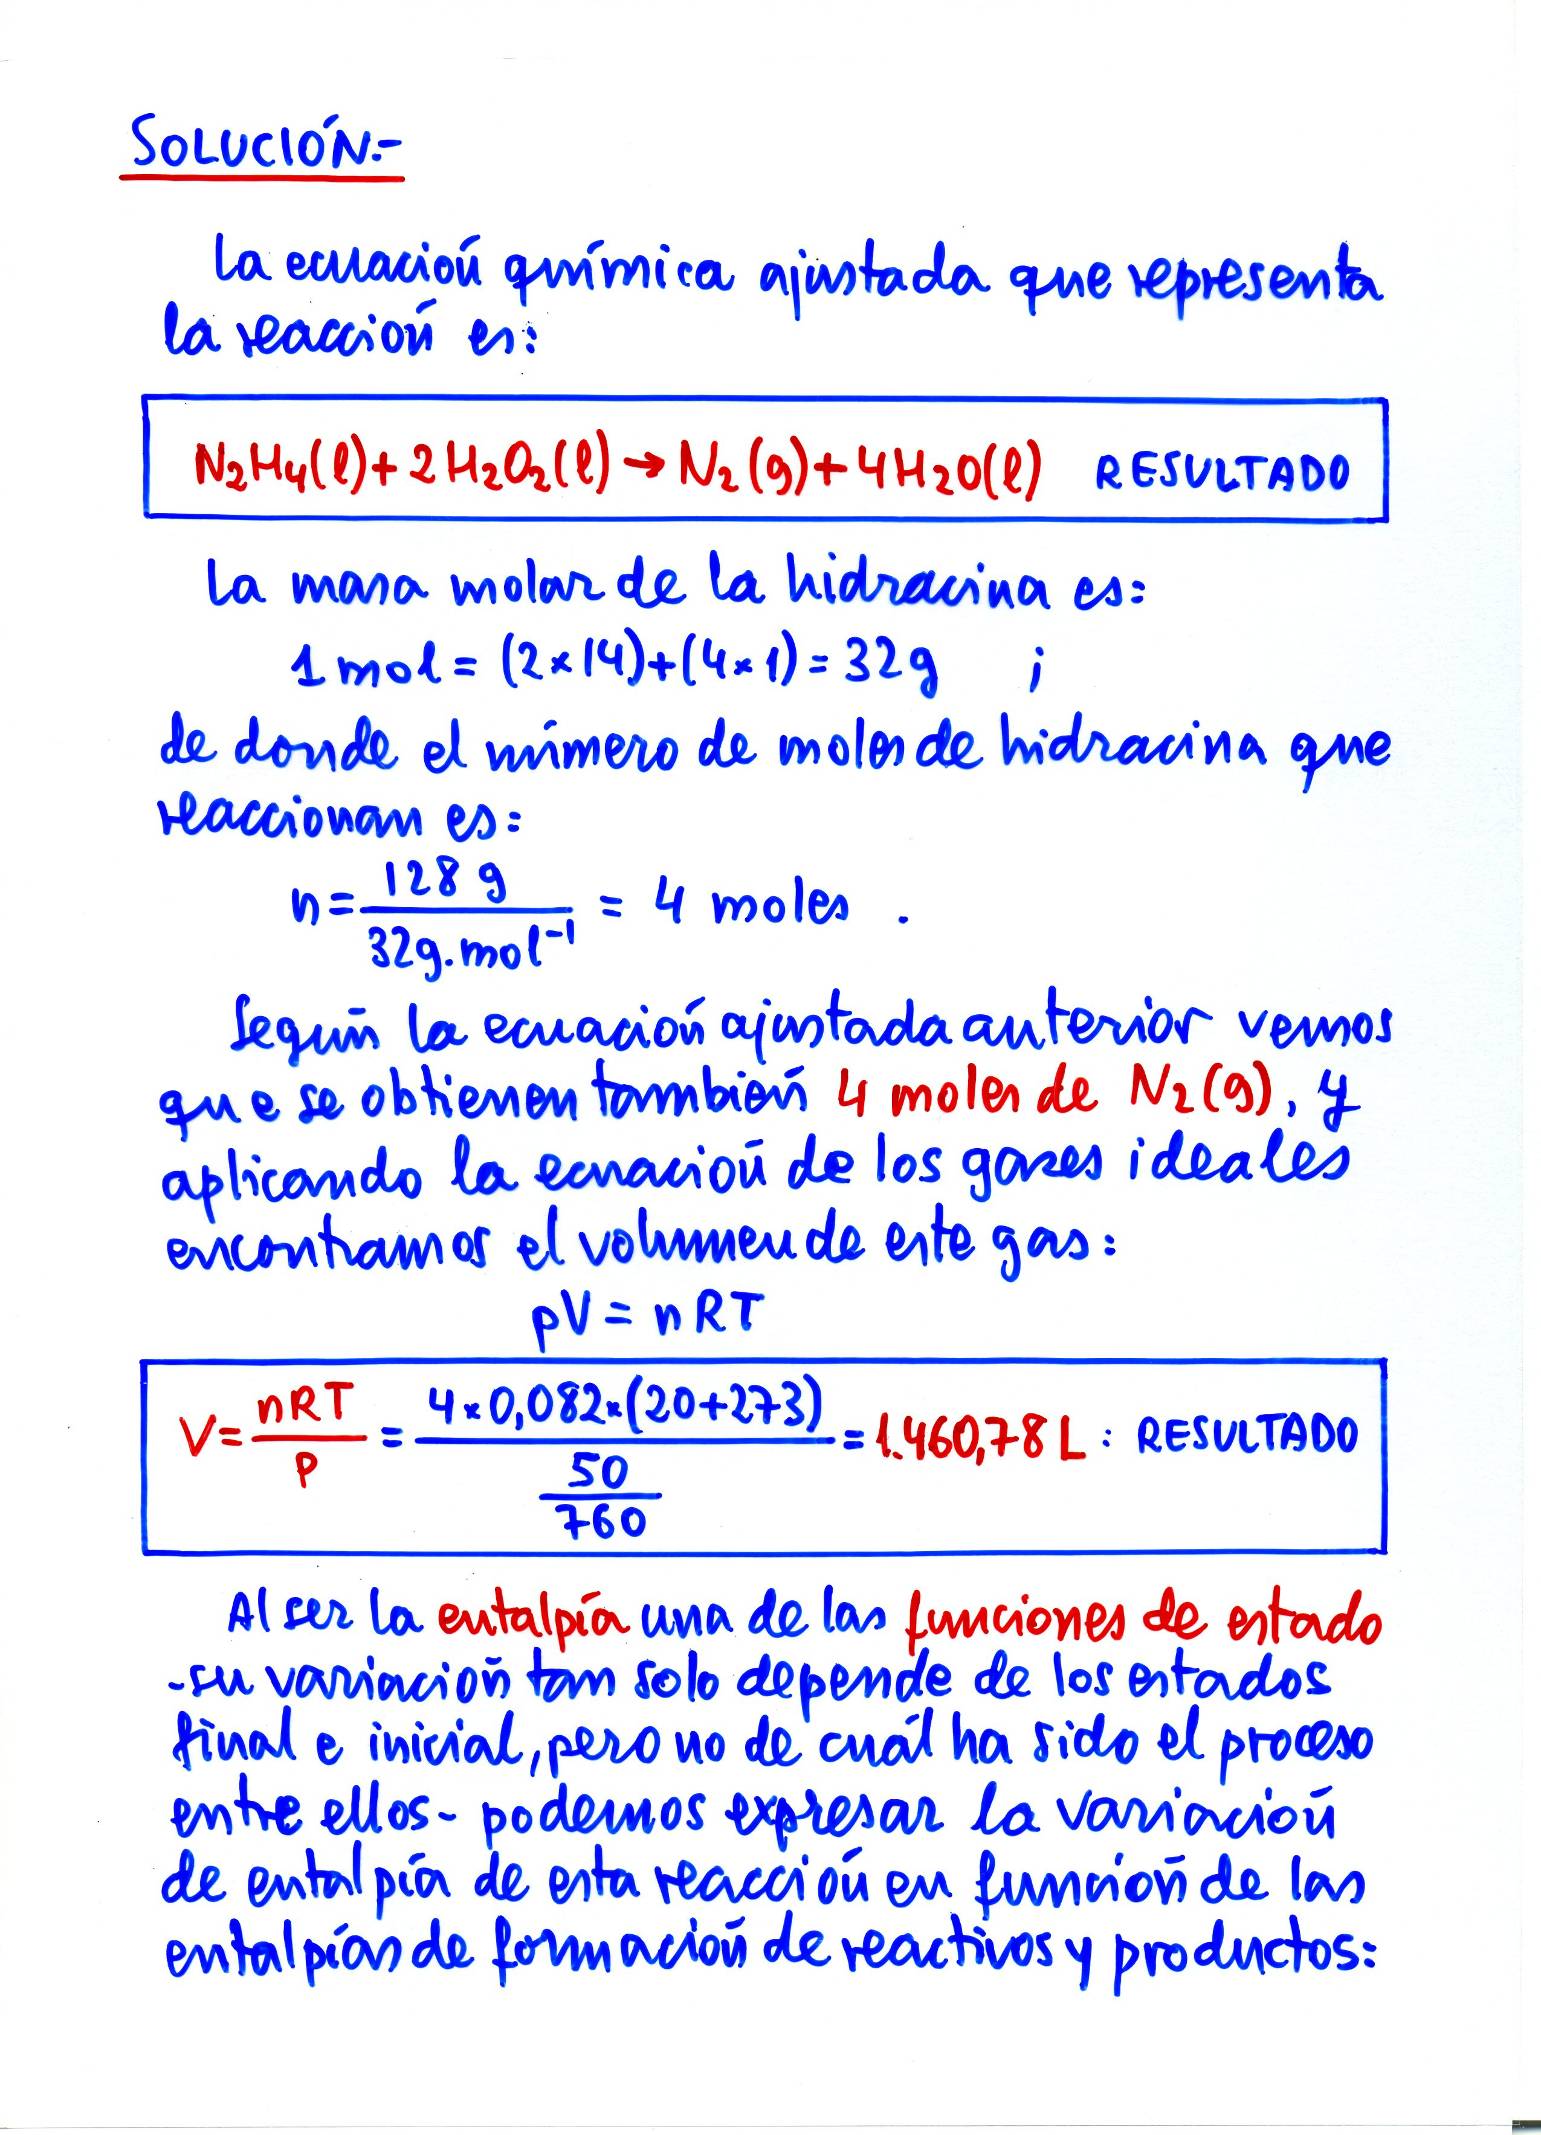 SOLUCIÓN.-
La ecuación química ajustada que representa
la reacción es:
N₂H₄(l)+2H₂O₂(l)→N₂(g)+4H₂O(l) RESULTADO
La masa molar de la hidracina es:
1 mol = (2×14)+(4×1)=32g ;
de donde el número de moles de hidracina que
reaccionan es:
n= 128 g / 32g.mol⁻¹ = 4 moles .
Según la ecuación ajustada anterior vemos
que se obtienen también 4 moles de N₂(g), y
aplicando la ecuación de los gases ideales
encontramos el volumen de este gas:
pV = nRT
V= nRT / P = 4×0,082×(20+273) / 50/760 = 1.460,78 L : RESULTADO
Al ser la entalpía una de las funciones de estado
-su variación tan solo depende de los estados
final e inicial, pero no de cuál ha sido el proceso
entre ellos- podemos expresar la variación
de entalpía de esta reacción en función de las
entalpías de formación de reactivos y productos: